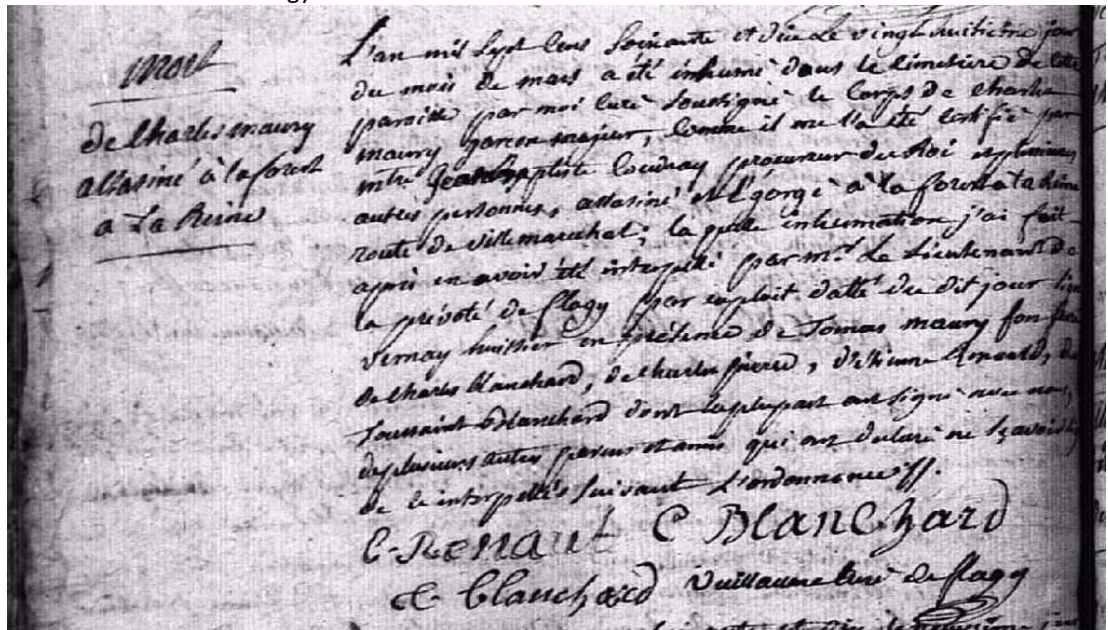 mort
de Charles maury
assasiné à la forest
a La Reine
L'an mil Sept Cens Soixante et dix Le vingt huitieme jour
du mois de mars a été inhumé dans le cimetiere de cette
paroisse par moi curé soussigné le Corps de Charles
maury garcon majeur, Comme il me l'a été certifié par
mtre Jean Baptiste Coudray procureur du Roi et plusieurs
autres personnes, assasiné et Egorgé à la forest a la Reine
route de villemarechal; la quelle inhumation j'ai fait
apres en avoir été interpellé par mr. Le Lieutenant de
la prévoté de flagy par exploit datté du dit jour
vernay huissier en présence de Tomas maury son frere
de Charles Blanchard, de Charles pierre, d'Etienne Renault, de
Toussaint Blanchard dont la plupart ont signé avec nous,
de plusieurs autres parens et amis qui ont declaré ne sçavoir
de ce interpellés suivant L'ordonnance
E. Renaut C Blanchard
C blanchard Vuillaume curé de flagy